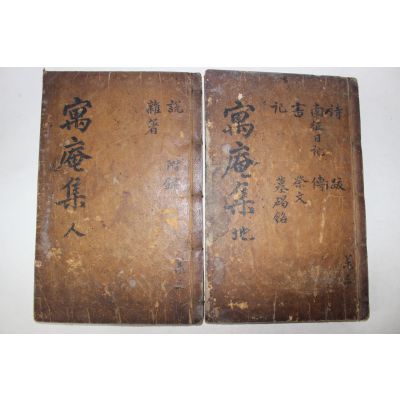 寓庵集 地
詩 跋
南征日記 傳
書 祭文
記 墓碣銘
共三
寓庵集 人
說 附錄
雜著